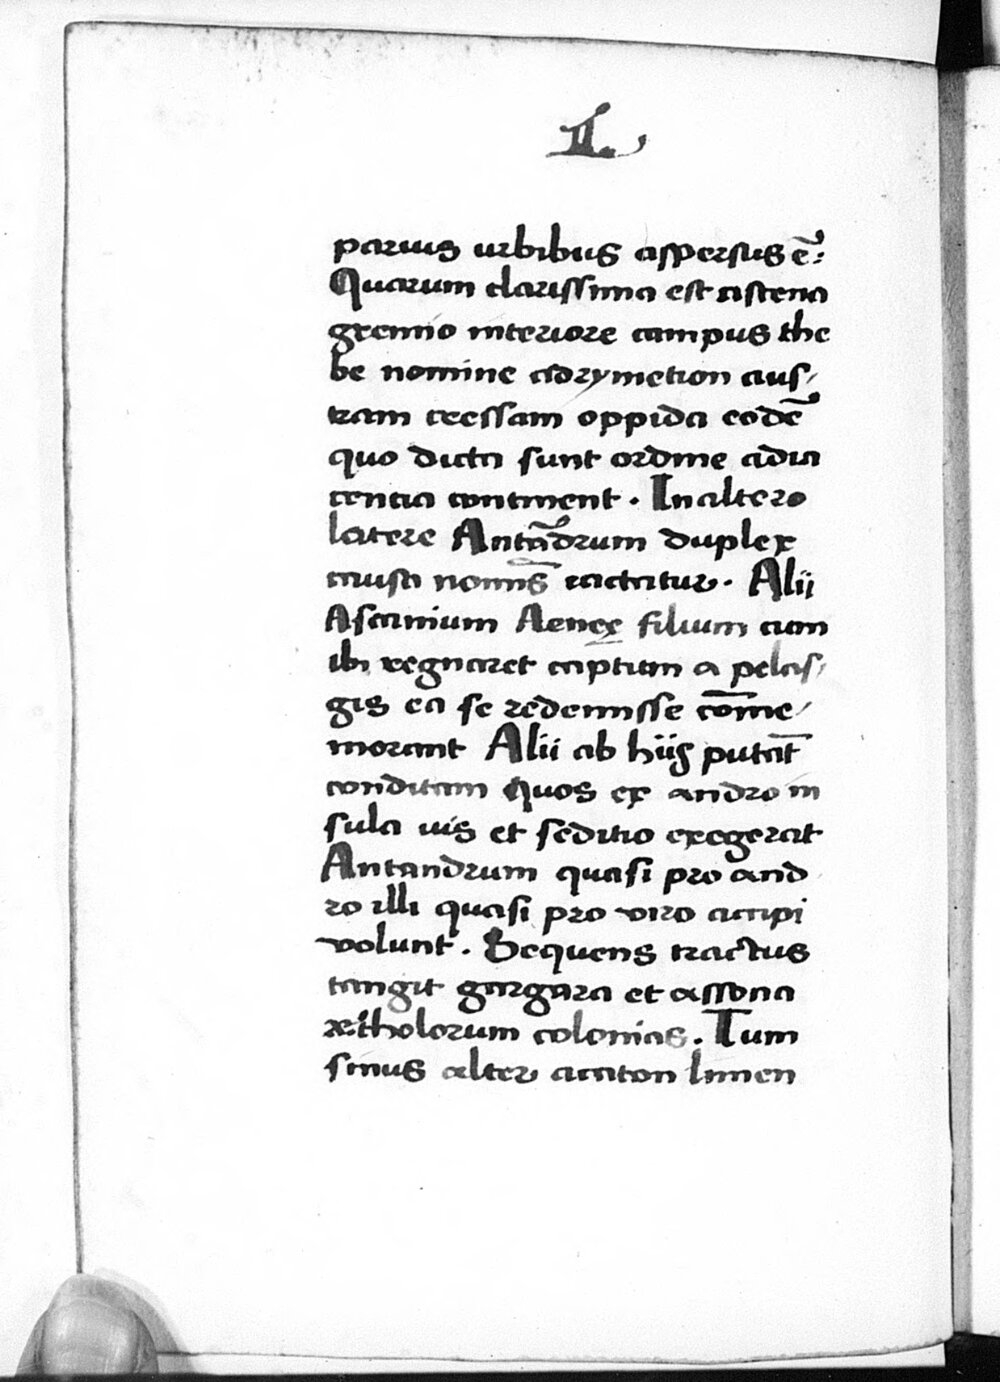 .II.
paruis urbibus aspersus ē:
Quarum clarissima est astena
gremio interiore campus the
be nomine adrymetion aus/
tram cressam oppida eodē
quo dicta sunt ordine adia
centia continent. In altero
latere Antādrum duplex
causa nominis iactatur. Alii
Ascanium Aeneę filium cum
ibi regnaret captum a pelas/
gis ea se redemisse cōme/
morant Alii ab hiis putāt
conditam Quos ex andro in
sula uis et seditio exegerat
Antandrum quasi pro and
ro illi quasi pro viro accipi
volunt. Sequens tractus
tangit gargara et assona
ætholorum colonias. Tum
sinus alter acaton limen